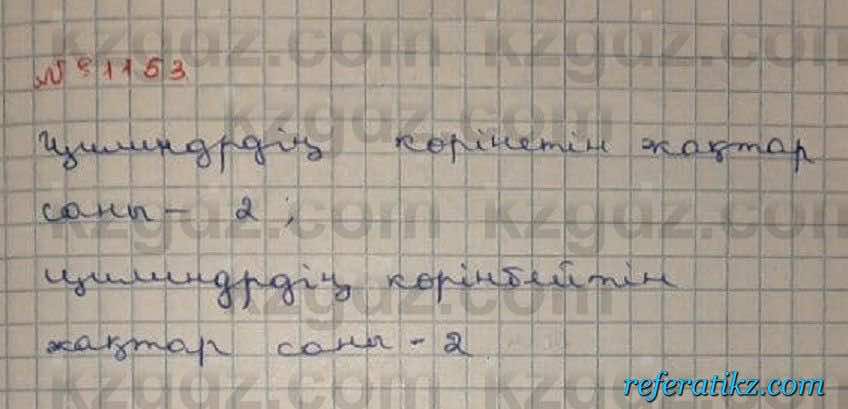 kzgdz.com kzgdz.com
№ 1153
kzgdz.com
Цилиндрдің көрінетін жақтар
kzgdz.com
саны - 2 ;
kzgdz.com kzgdz.com
цилиндрдің көрінбейтін
kzgdz.com
жақтар саны - 2
kzgdz.com
referatikz.com